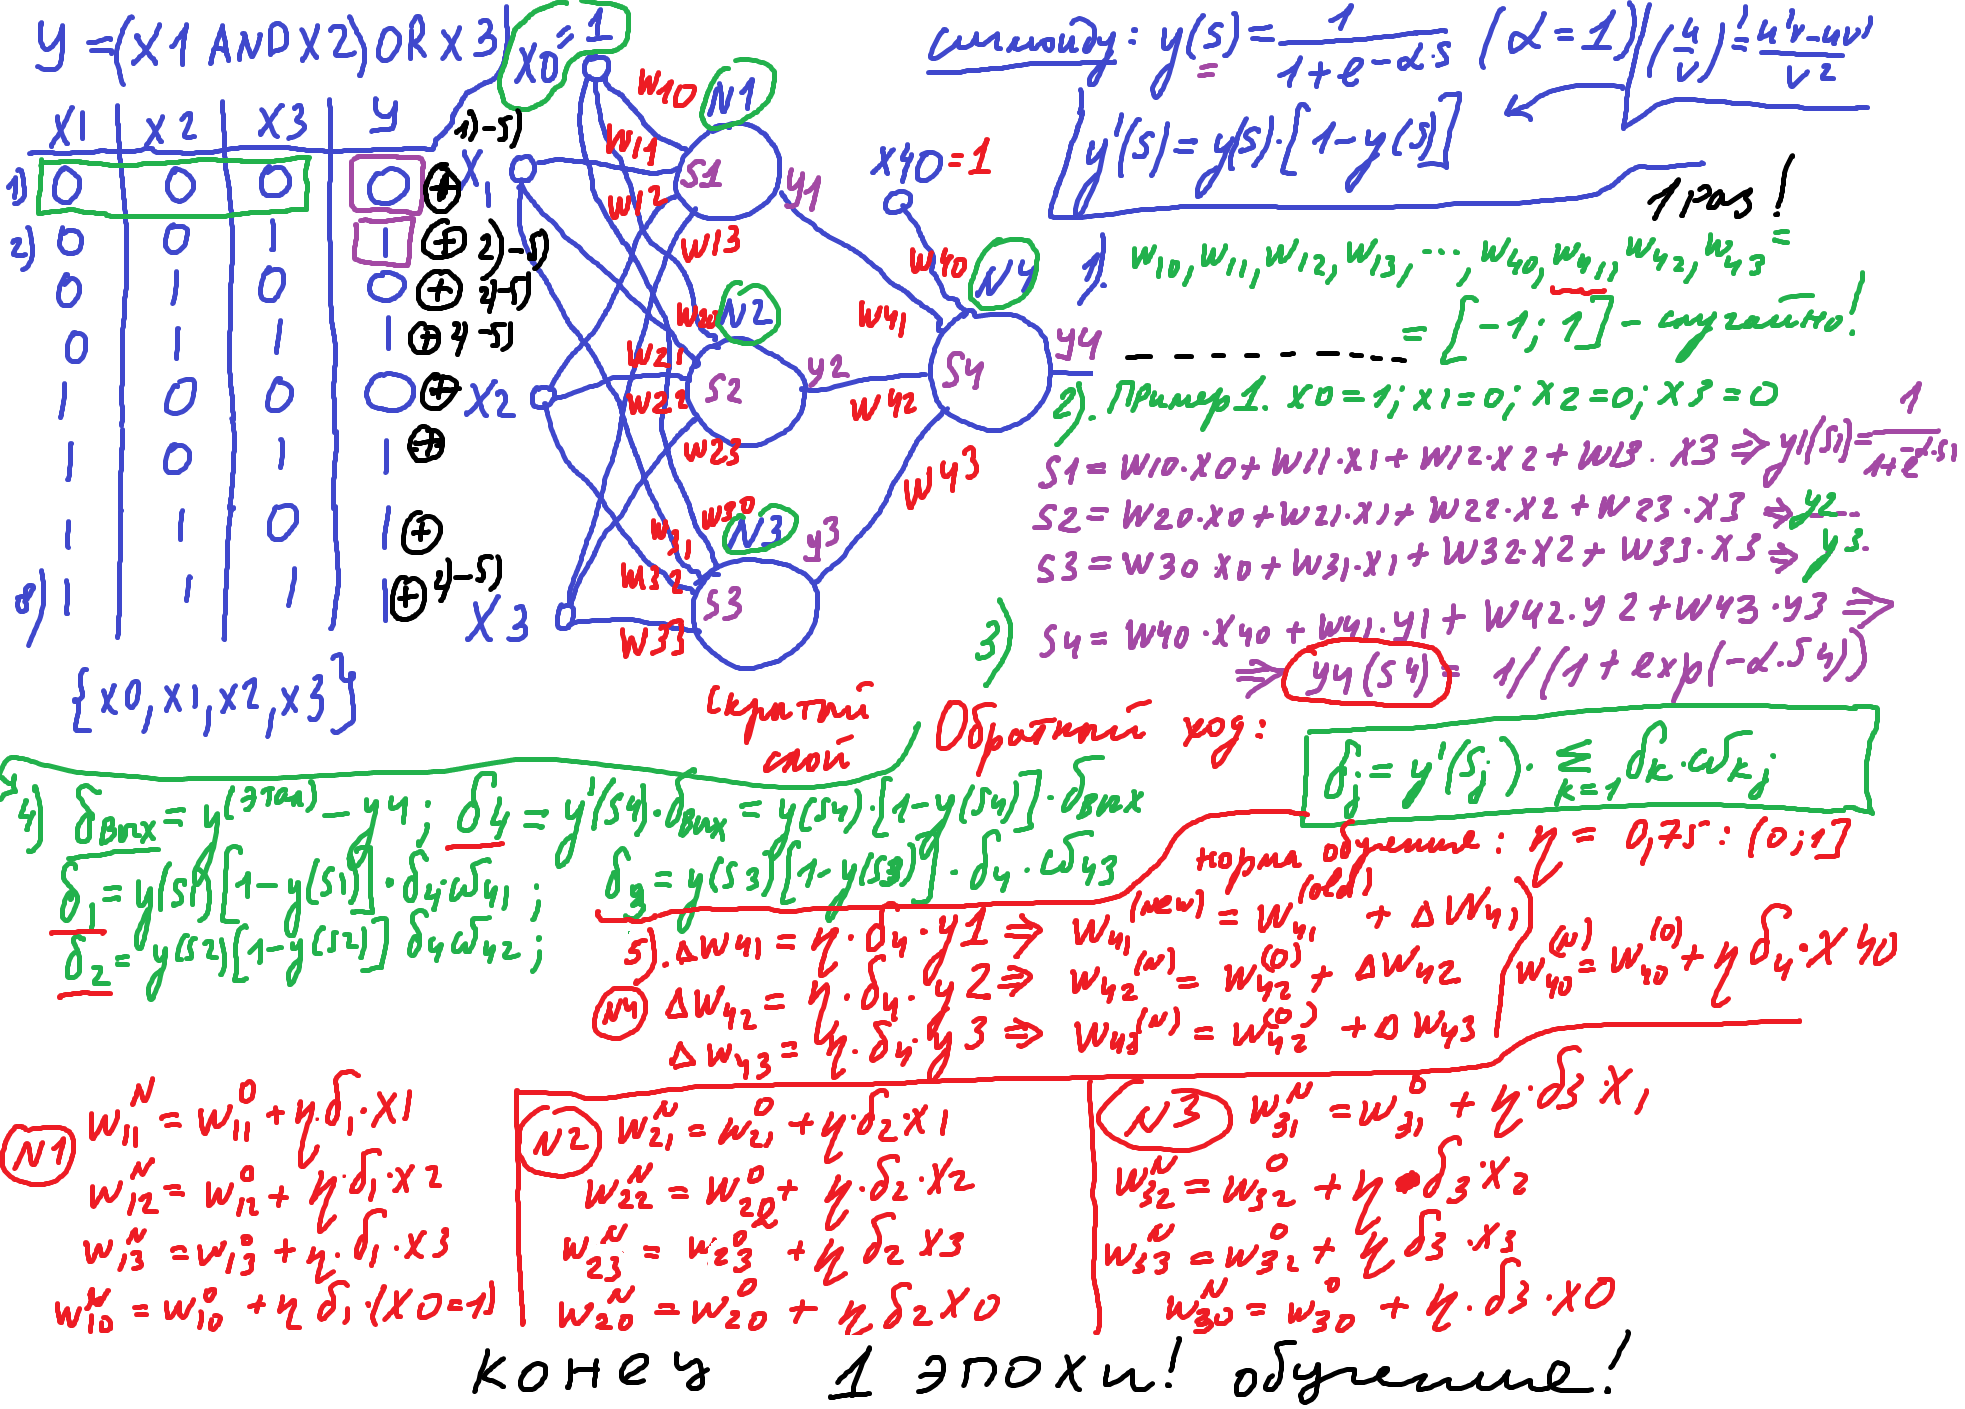 y = (X1 AND X2) OR X3
X1 X2 X3 y
1) 0 0 0 0 +
2) 0 0 1 1 + 2)-5)
0 1 0 0 + 2)-5)
0 1 1 1 + 2)-5)
1 0 0 0 +
1 0 1 1 +
1 1 0 1 +
8) 1 1 1 1 + 2)-5)
{x0, x1, x2, x3}
X0 = 1
1)-5)
X1
X2
X3
W10
W11
W12
W13
N1
S1
y1
W20
W21
W22
W23
N2
S2
y2
W30
W31
W32
W33
N3
S3
y3
скрытый
слой
X40=1
W40
W41
W42
W43
N4
S4
y4
сигмоиду: y(s) = 1/(1+e^-α·s) (α=1) (u/v)' = (u'v-uv')/v²
y'(s) = y(s)·[1-y(s)]
1 раз!
1). W10, W11, W12, W13, ..., W40, W41, W42, W43 =
= [-1; 1] - случайно!
2). Пример 1. x0=1; x1=0; x2=0; x3=0
S1 = W10·X0 + W11·X1 + W12·X2 + W13·X3 ⇒ y1(S1) = 1/(1+e^-α·S1)
S2 = W20·X0 + W21·X1 + W22·X2 + W23·X3 ⇒ y2
S3 = W30 X0 + W31·X1 + W32·X2 + W33·X3 ⇒ y3.
3) S4 = W40·X40 + W41·y1 + W42·y2 + W43·y3 ⇒
⇒ y4(S4) = 1/(1+exp(-α·S4))
Обратный ход:
δj = y'(Sj)·Σ k=1 δk·ωkj
4) δвых = y(этал) - y4; δ4 = y'(S4)·δвых = y(S4)·[1-y(S4)]·δвых
δ1 = y(S1)[1-y(S1)]·δ4·ω41; δ3 = y(S3)[1-y(S3)]·δ4·ω43
δ2 = y(S2)[1-y(S2)] δ4 ω42;
норма обучение: η = 0,75 : (0;1]
5). ΔW41 = η·δ4·y1 ⇒ W41(new) = W41(old) + ΔW41
N4 ΔW42 = η·δ4·y2 ⇒ W42(N) = W42(0) + ΔW42
ΔW43 = η·δ4·y3 ⇒ W43(N) = W42(0) + ΔW43
W40(N) = W40(0) + η δ4·X40
N1
W11^N = W11^0 + η·δ1·X1
W12^N = W12^0 + η·δ1·X2
W13^N = W13^0 + η·δ1·X3
W10^N = W10^0 + η δ1·(X0=1)
N2
W21^N = W21^0 + η·δ2·X1
W22^N = W22^0 + η·δ2·X2
W23^N = W23^0 + η δ2 X3
W20^N = W20^0 + η δ2 X0
N3
W31^N = W31^0 + η·δ3·X1
W32^N = W32^0 + η·δ3 X2
W33^N = W32^0 + η δ3·X3
W30^N = W30^0 + η·δ3·X0
конец 1 эпохи! обучение!